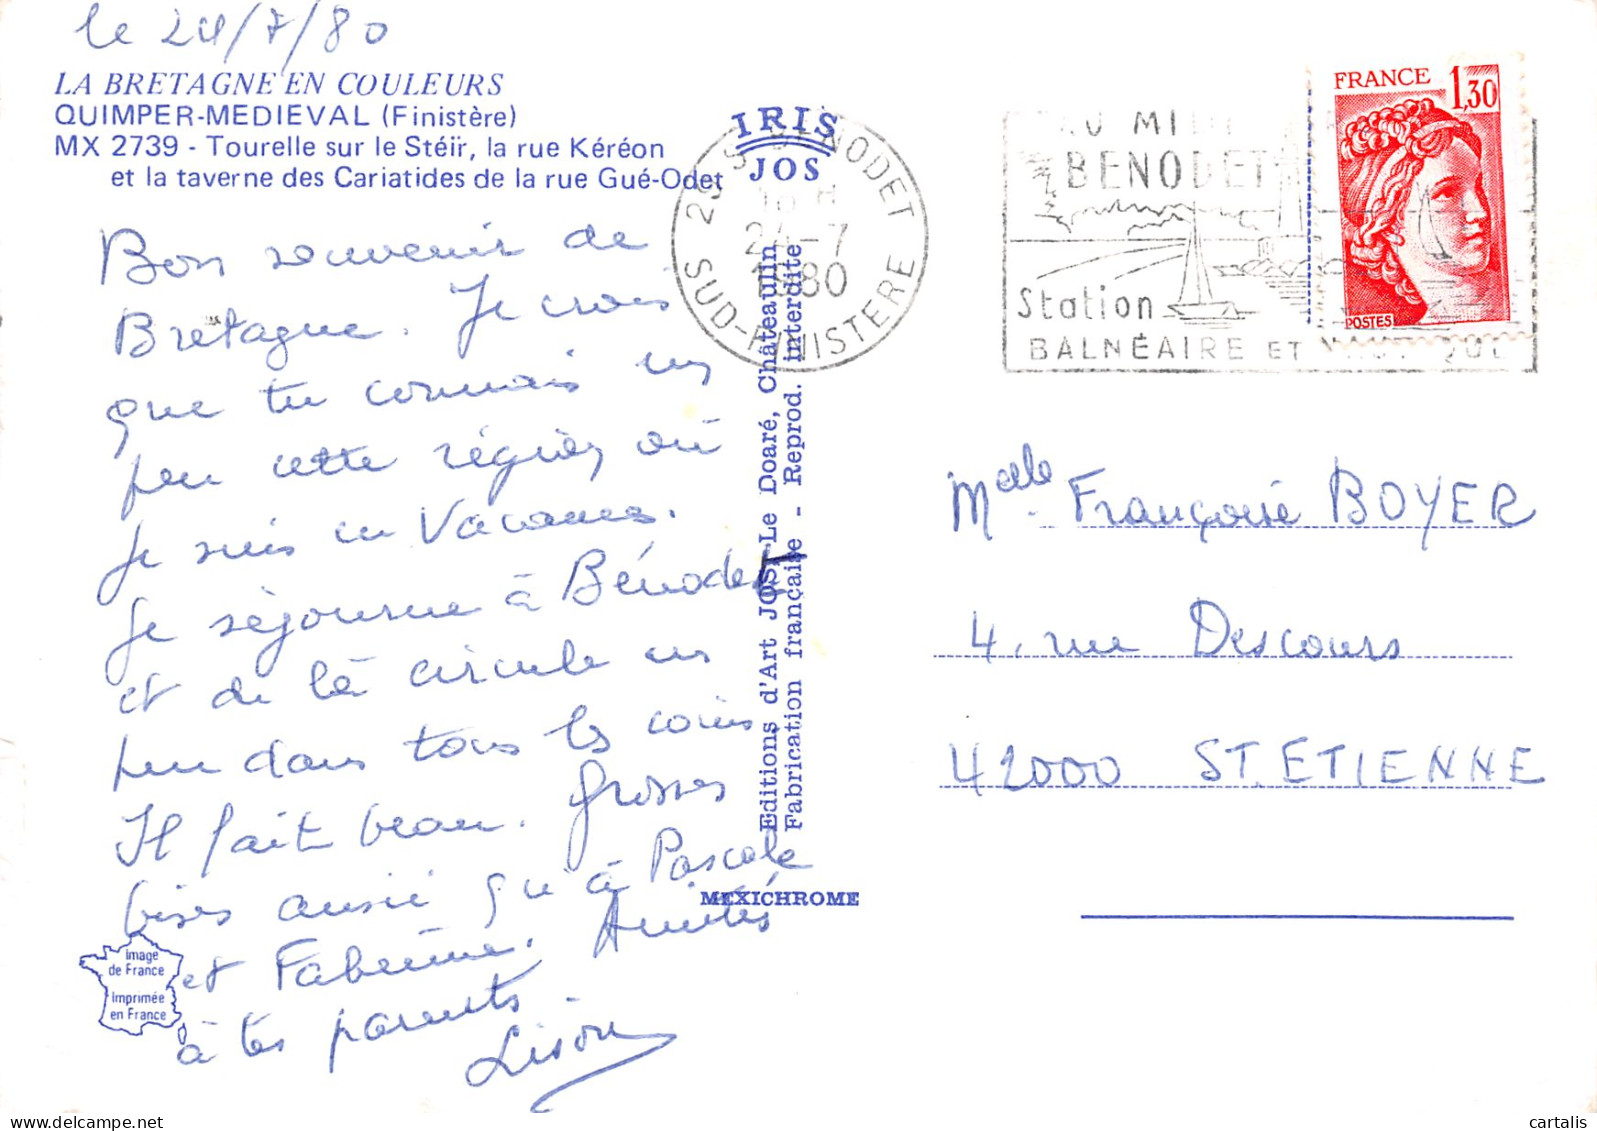 le 24/7/80
LA BRETAGNE EN COULEURS
QUIMPER-MEDIEVAL (Finistère)
MX 2739 - Tourelle sur le Stéïr, la rue Kéréon
et la taverne des Cariatides de la rue Gué-Odet
Bon souvenir de
Bretagne. Je crois
que tu connais un
peu cette région, où
je suis en Vacances.
Je séjourne à Bénodet
et de là circule un
peu dans tous les coins
Il fait beau. Grosses
bises ainsi qu'à Pascale
et Fabienne. Amitiés
à tes parents.
Lison
Image
de France
Imprimée
en France
IRIS
JOS
29 S BENODET
24-7
1980
SUD-FINISTERE
Editions d'Art JOS Le Doaré, Châteaulin
Fabrication française - Reprod. interdite
MEXICHROME
AU MIDI
BENODET
Station
BALNÉAIRE ET
FRANCE 1,30
POSTES
Melle Françoise BOYER
4, rue Descours
42000 ST. ETIENNE
cartalis